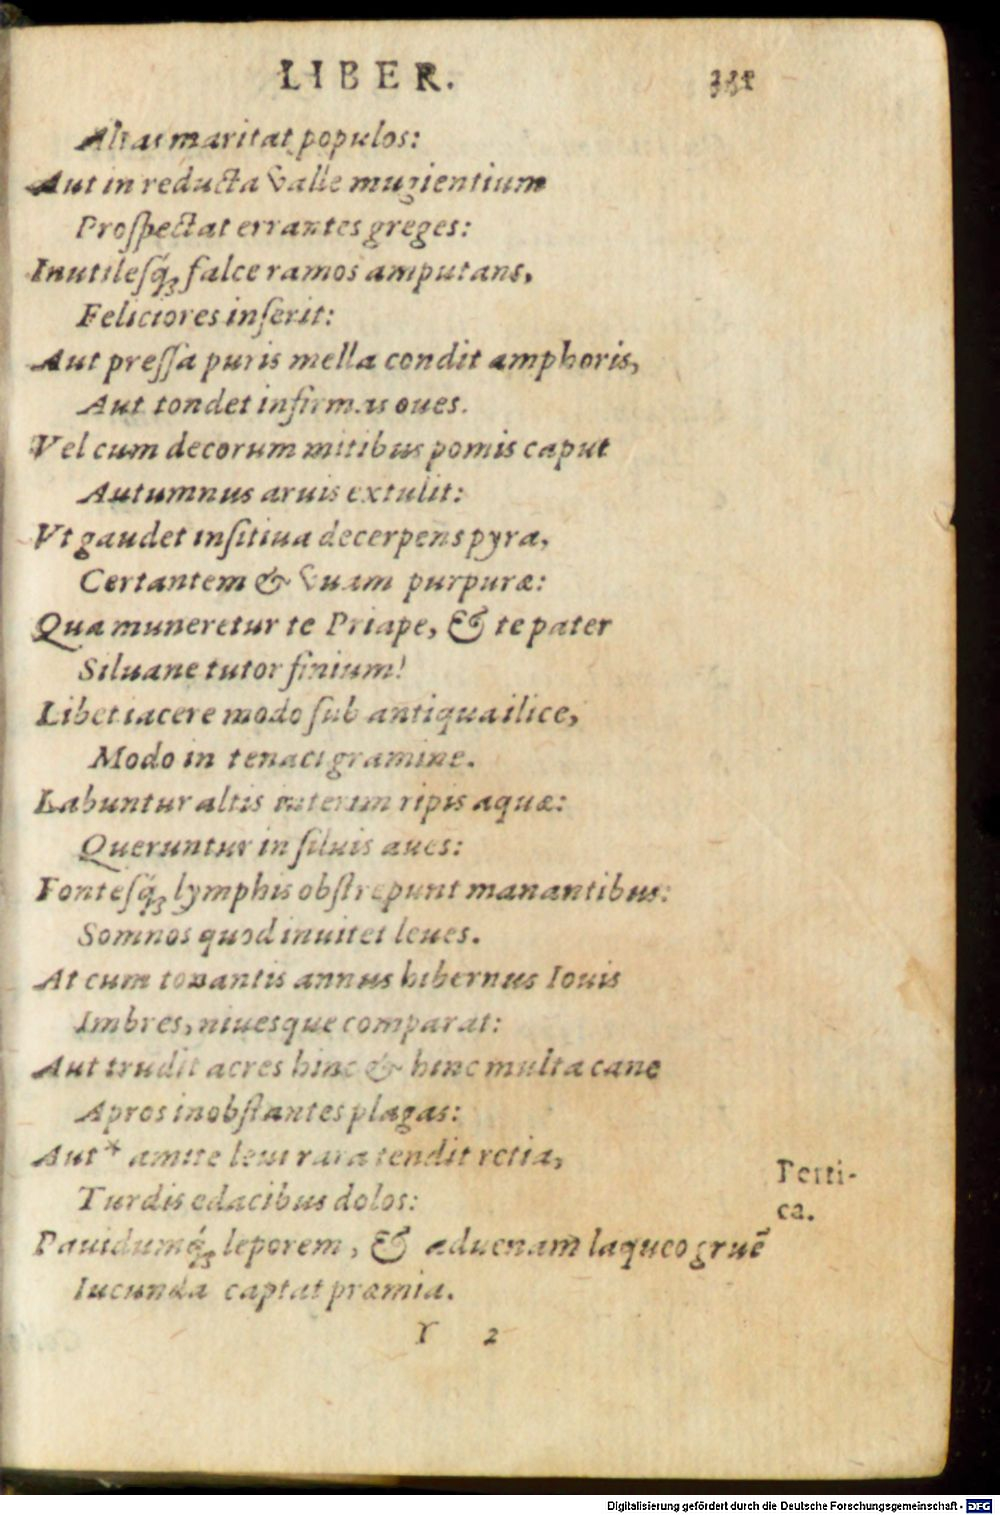 LIBER.
Altas maritat populos:
Aut in reducta valle mugientium
Proſpectat errantes greges:
Inutileſq́; falce ramos amputans,
Feliciores inſerit:
Aut preſſa puris mella condit amphoris,
Aut tondet infirmas oues.
Vel cum decorum mitibus pomis caput
Autumnus aruis extulit:
Vt gaudet inſitiua decerpens pyra,
Certantem & vuam purpuræ:
Qua muneretur te Priape, & te pater
Siluane tutor finium!
Libet iacere modo ſub antiqua ilice,
Modo in tenaci gramine.
Labuntur altis interim ripis aquæ:
Queruntur in ſiluis aues:
Fonteſq́; lymphis obſtrepunt manantibus:
Somnos quod inuitet leues.
At cum tonantis annus hibernus Iouis
Imbres, niuesque comparat:
Aut trudit acres hinc & hinc multa cane
Apros in obſtantes plagas:
Aut * amite leui rara tendit retia,
Turdis edacibus dolos:
Perti-
ca.
Pauidumq́; leporem, & aduenam laqueo gruẽ
Iucunda captat præmia.
Y 2
Digitalisierung gefördert durch die Deutsche Forschungsgemeinschaft - DFG